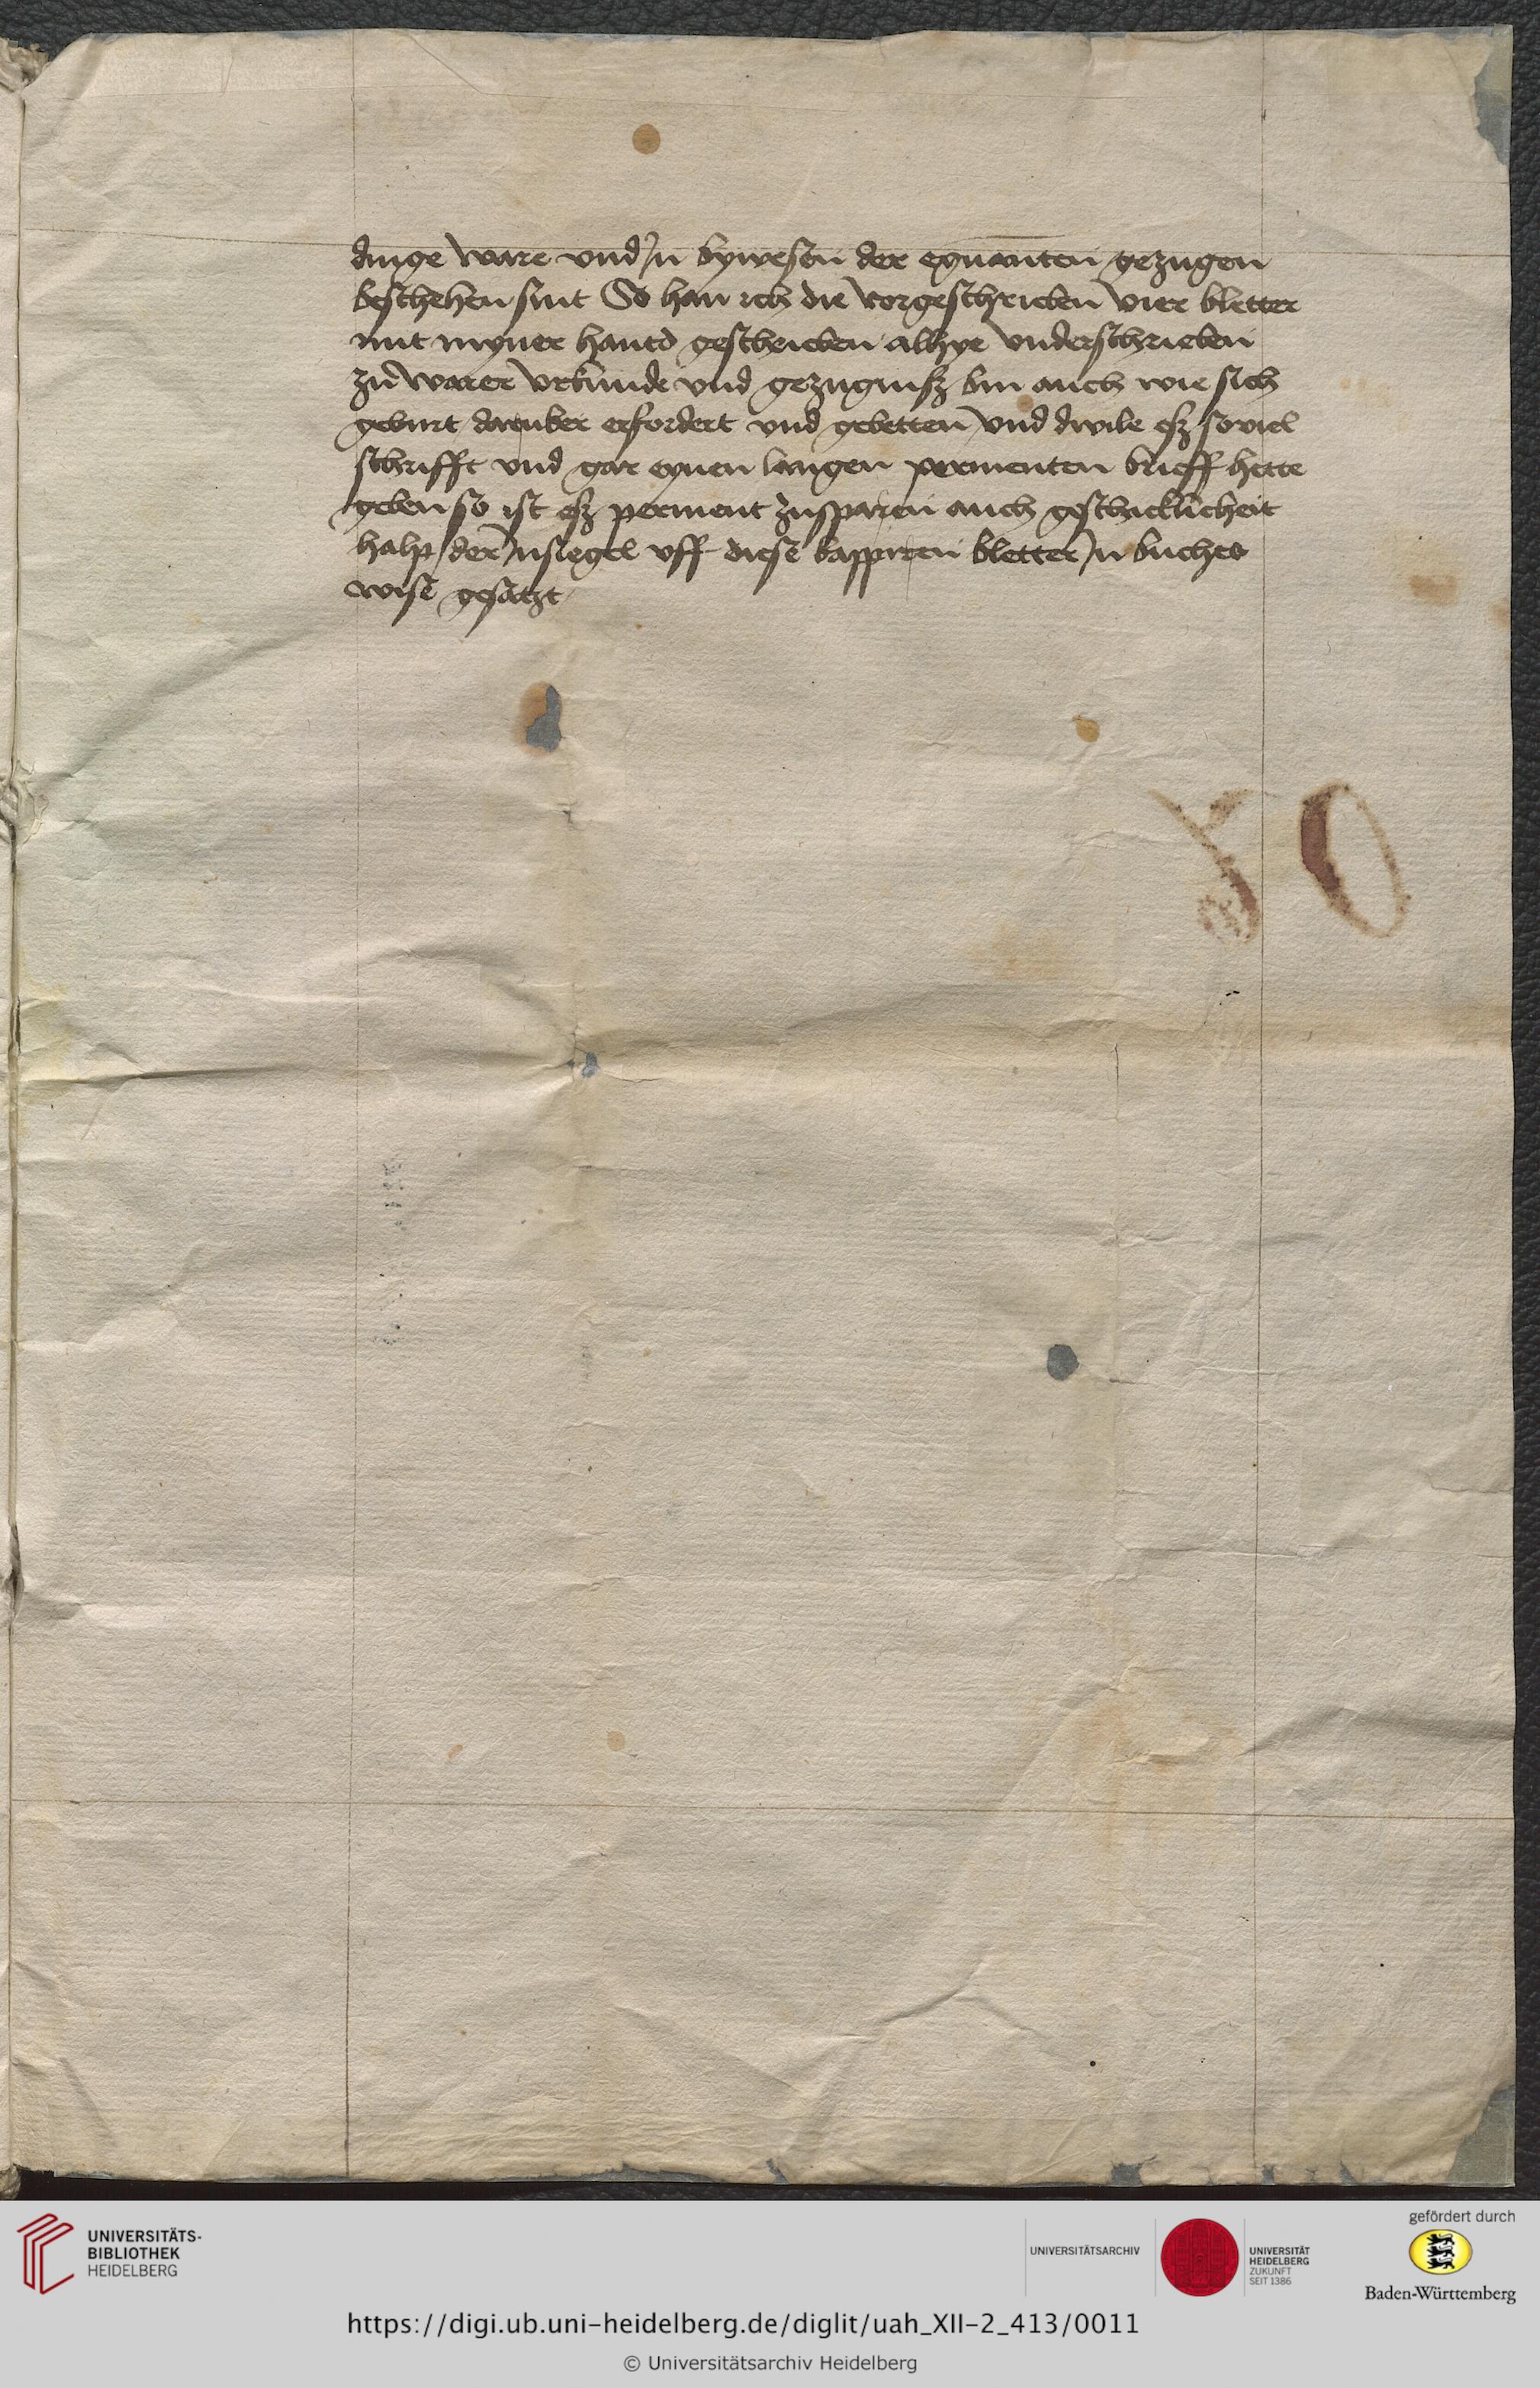 dinge ware und in bywesen der egnanten gezugen
beschehen sint So han ich die vorgeschrieben vier bletter
mit myner hantd geschrieben alhye underschrieben
zu warer urkunde und gezugnisz bin auch wie sich
geburt daruber erfordert und gebetten und dwile esz soviel
schrifft und gar eynen langen permenten brieff hette
geben so ist esz perment zusparen auch geschicklicheit
halp der insiegel uff diese bappiren bletter in buches
wise gesatzt
UNIVERSITÄTS-
BIBLIOTHEK
HEIDELBERG
UNIVERSITÄTSARCHIV
UNIVERSITÄT
HEIDELBERG
ZUKUNFT
SEIT 1386
gefördert durch
Baden-Württemberg
https://digi.ub.uni-heidelberg.de/diglit/uah_XII-2_413/0011
© Universitätsarchiv Heidelberg